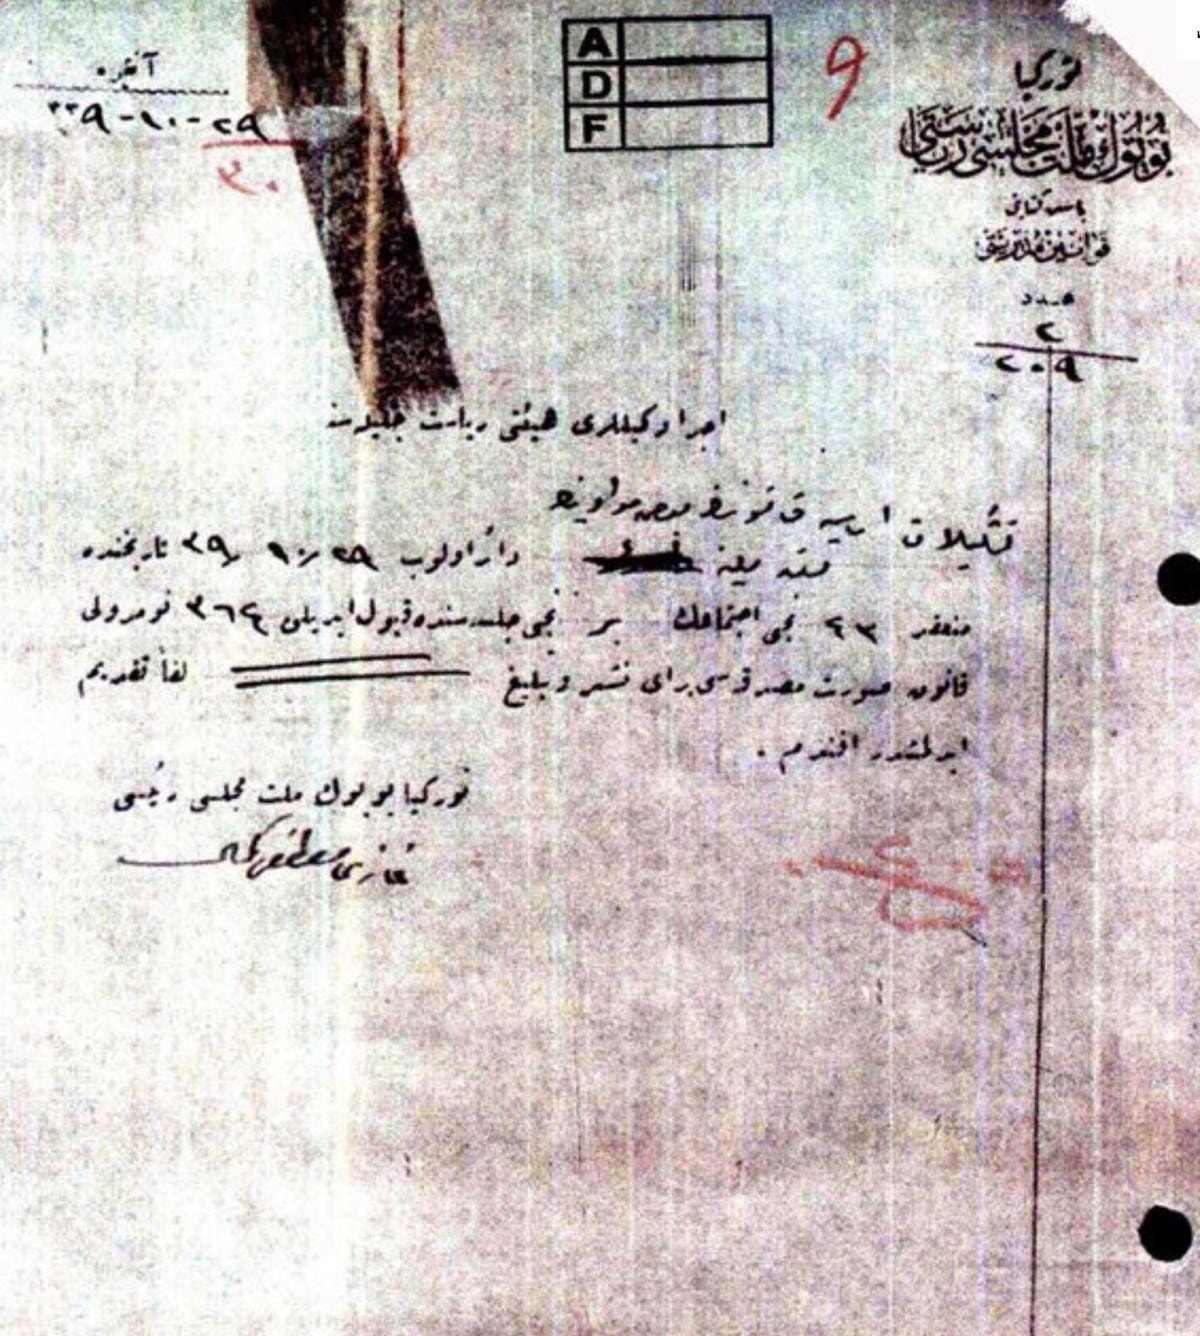 آنقره
٢٩-١٠-٣٣٩
٣٠
A
D
F
9
توركيا
بويوك ملت مجلسى رياستى
باش كتابتى
قوانين مديريتى
عدد
٢
٢٠٩
اجرا وكيللرى هيئتى رياست جليله‌سنه
تشكيلات اساسيه قانوننك بعض موادينك
دائر اولوب ٢٩/١٠/٣٩ تاريخنده
منعقد ٤٣ نجى اجتماعك بر نجى جلسه‌سنده قبول ايديلن ٣٦٤ نومرولى
قانون صورت مصدقه‌سى براى نشر و تبليغ لفاً تقديم
ايدلمشدر افندم .
توركيا بويوك ملت مجلسى رئيسى
غازى مصطفى كمال